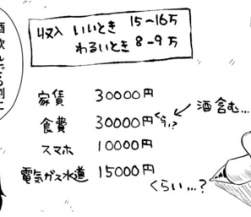 収入 いいとき 15〜16万
わるいとき 8〜9万
家賃 30000円
食費 30000円くらい?
酒含む…
スマホ 10000円
電気ガス水道 15000円
くらい…?